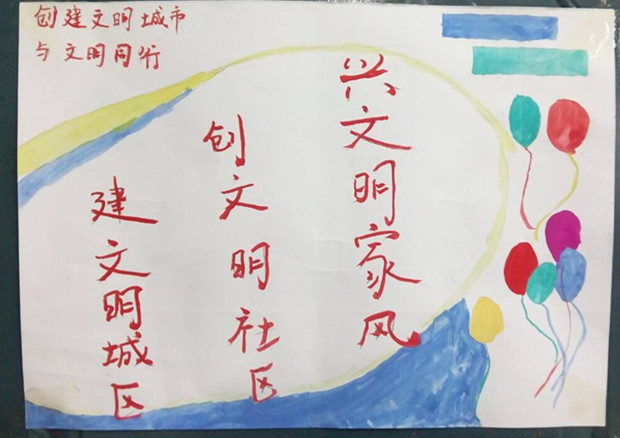 创建文明城市
与文明同行
兴文明家风
创文明社区
建文明城区